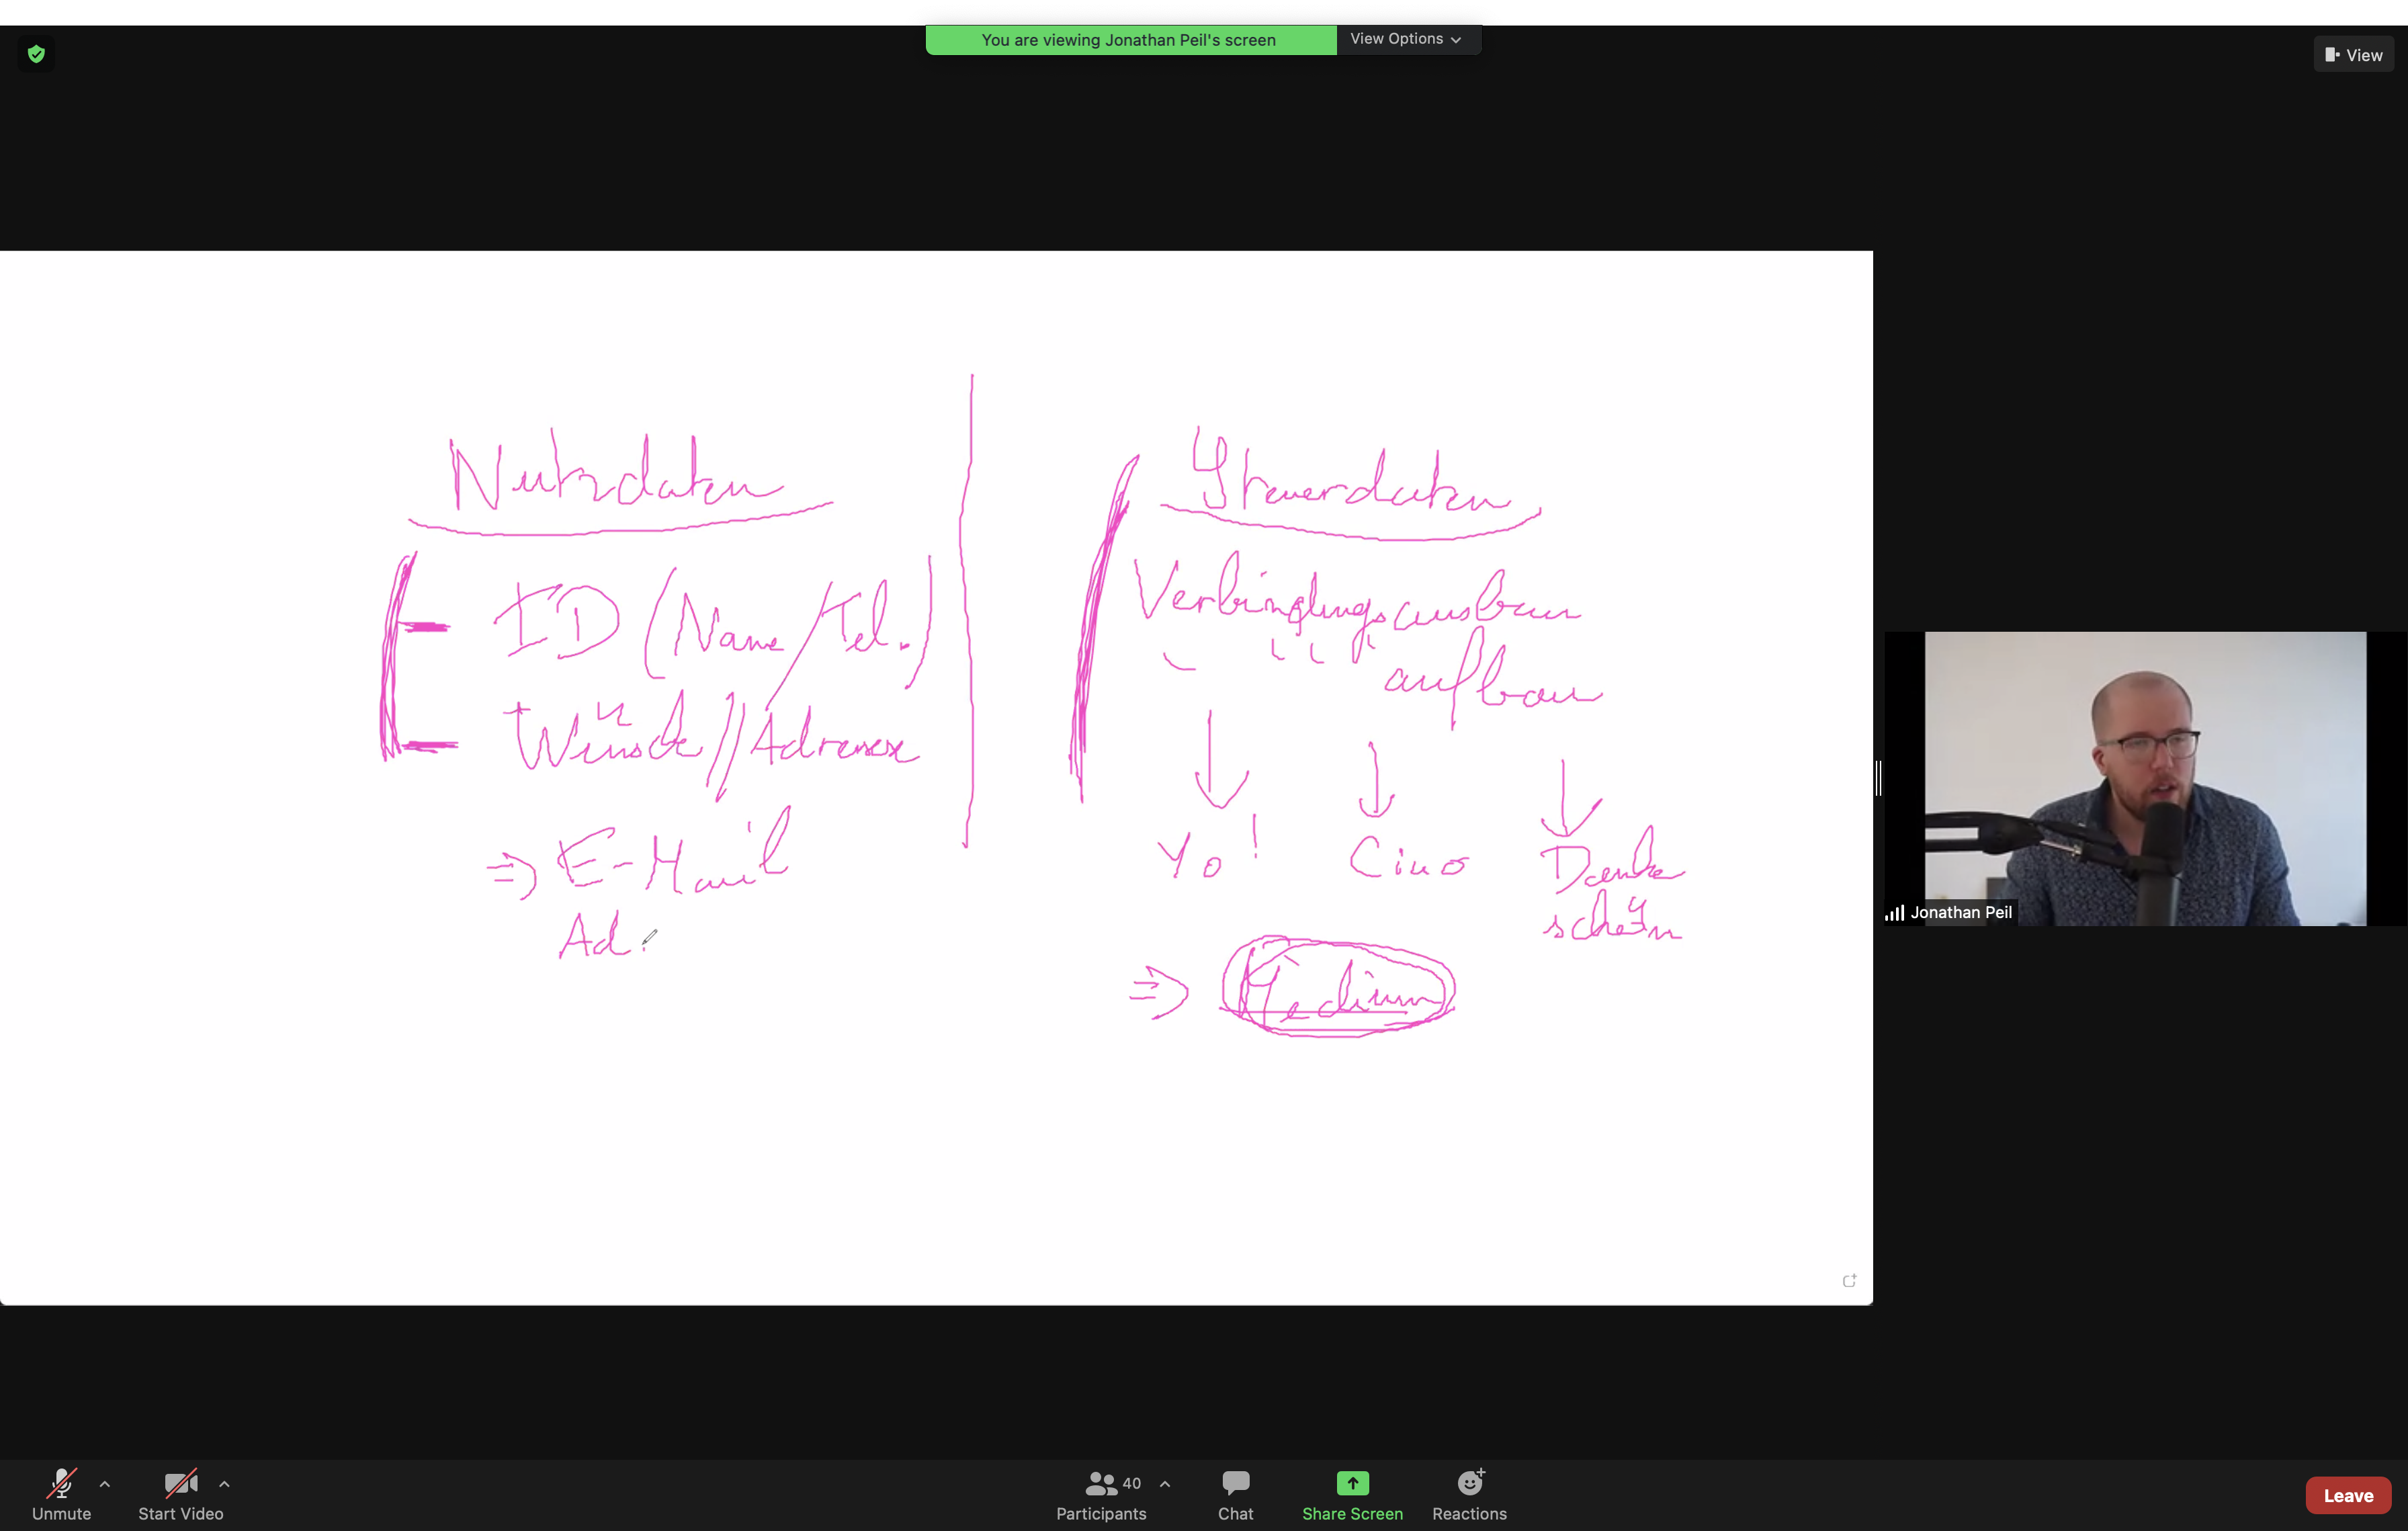 You are viewing Jonathan Peil's screen
View Options
View
Nutzdaten
ID (Name/Tel.)
Wünsche//Adresse
=> E-Mail
Ad.
Steuerdaten
Verbindungsausbau
aufbau
Yo!
Ciao
Danke
schön
=> Medium
Jonathan Peil
Unmute
Start Video
40
Participants
Chat
Share Screen
Reactions
Leave